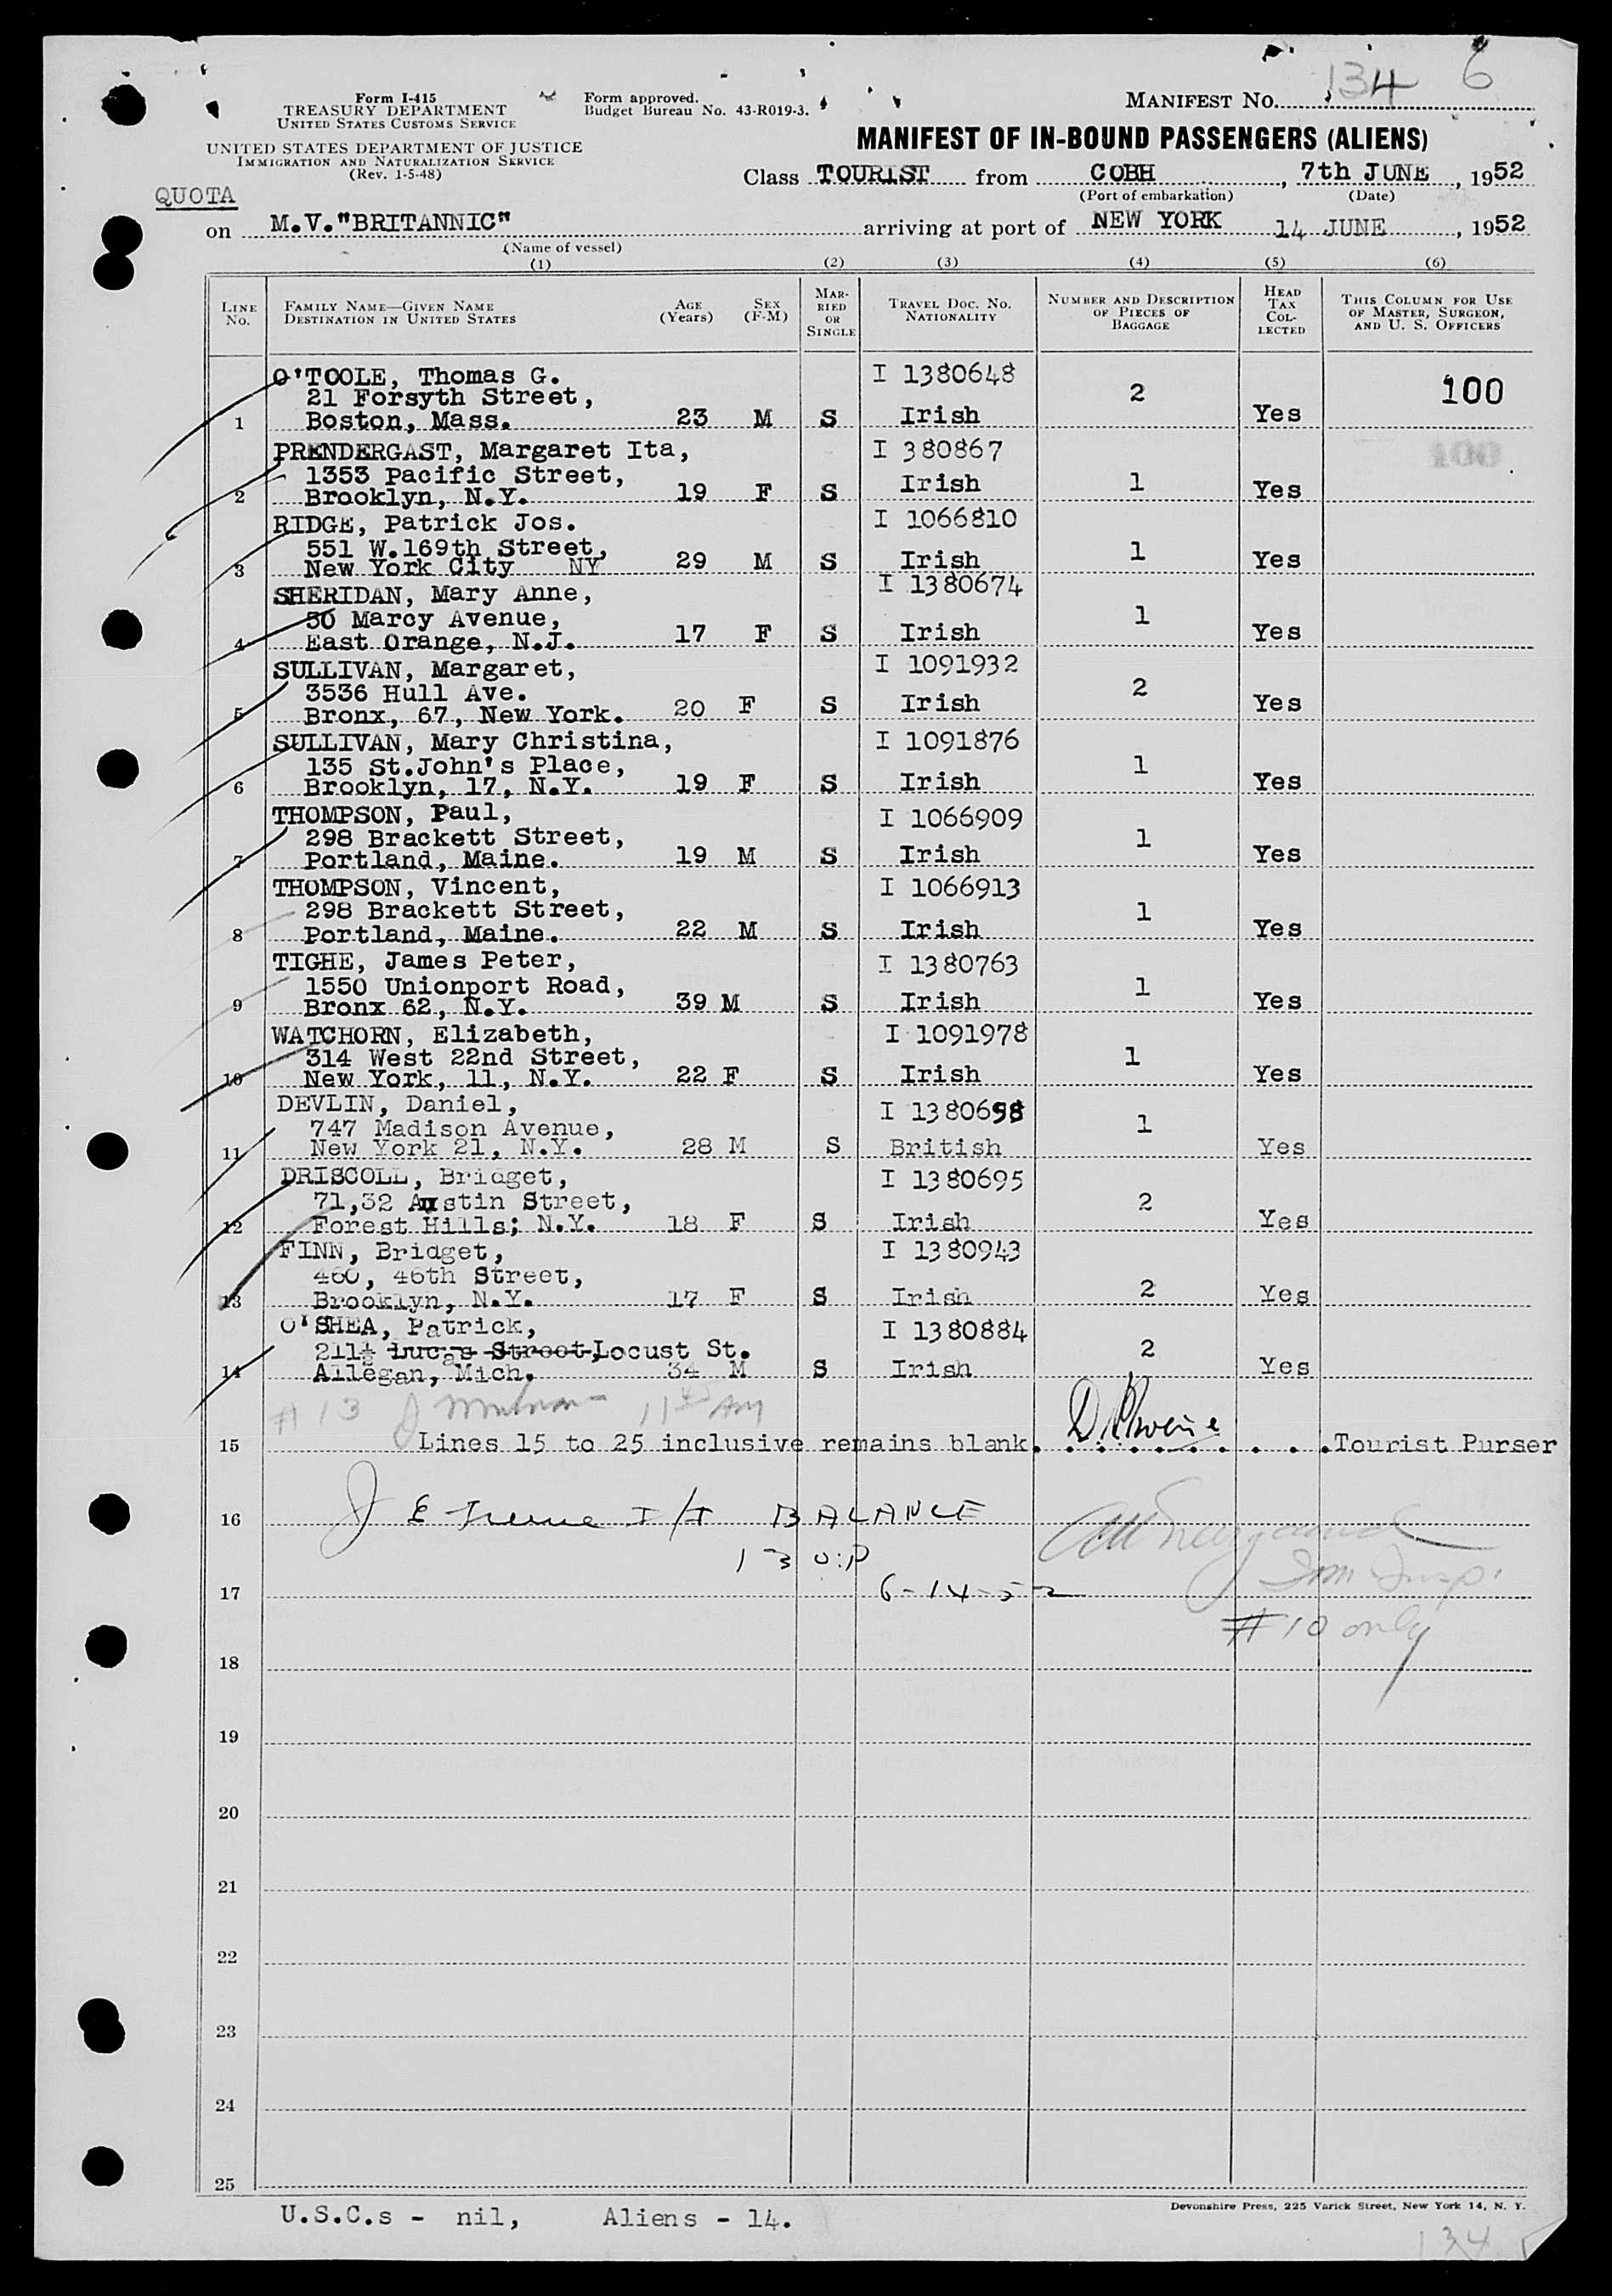 134 6
Form I-415
TREASURY DEPARTMENT
UNITED STATES CUSTOMS SERVICE
UNITED STATES DEPARTMENT OF JUSTICE
IMMIGRATION AND NATURALIZATION SERVICE
(Rev. 1-5-48)
Form approved.
Budget Bureau No. 43-R019-3.
MANIFEST NO.
MANIFEST OF IN-BOUND PASSENGERS (ALIENS)
Class TOURIST from COBH, 7th JUNE, 1952
(Port of embarkation) (Date)
QUOTA
on M.V."BRITANNIC" arriving at port of NEW YORK 14 JUNE, 1952
(Name of vessel)
(1) (2) (3) (4) (5) (6)
LINE NO. FAMILY NAME—GIVEN NAME DESTINATION IN UNITED STATES AGE (Years) SEX (F-M) MARRIED OR SINGLE TRAVEL DOC. NO. NATIONALITY NUMBER AND DESCRIPTION OF PIECES OF BAGGAGE HEAD TAX COLLECTED THIS COLUMN FOR USE OF MASTER, SURGEON, AND U. S. OFFICERS
O'TOOLE, Thomas G. I 1380648
21 Forsyth Street, 2 100
1 Boston, Mass. 23 M S Irish Yes
PRENDERGAST, Margaret Ita, I 380867 100
1353 Pacific Street, Irish 1
2 Brooklyn, N.Y. 19 F S Yes
RIDGE, Patrick Jos. I 1066810
551 W.169th Street, 1
3 New York City NY 29 M S Irish Yes
SHERIDAN, Mary Anne, I 1380674
50 Marcy Avenue, 1
4 East Orange, N.J. 17 F S Irish Yes
SULLIVAN, Margaret, I 1091932
3536 Hull Ave. 2
5 Bronx, 67, New York. 20 F S Irish Yes
SULLIVAN, Mary Christina, I 1091876
135 St.John's Place, 1
6 Brooklyn, 17, N.Y. 19 F S Irish Yes
THOMPSON, Paul, I 1066909
298 Brackett Street, 1
7 Portland, Maine. 19 M S Irish Yes
THOMPSON, Vincent, I 1066913
298 Brackett Street, 1
8 Portland, Maine. 22 M S Irish Yes
TIGHE, James Peter, I 1380763
1550 Unionport Road, 1
9 Bronx 62, N.Y. 39 M S Irish Yes
WATCHORN, Elizabeth, I 1091978
314 West 22nd Street, 1
10 New York, 11, N.Y. 22 F S Irish Yes
DEVLIN, Daniel, I 1380698
747 Madison Avenue, 1
11 New York 21, N.Y. 28 M S British Yes
DRISCOLL, Bridget, I 1380695
71,32 Austin Street, 2
12 Forest Hills; N.Y. 18 F S Irish Yes
FINN, Bridget, I 1380943
460, 46th Street, 2
13 Brooklyn, N.Y. 17 F S Irish Yes
O'SHEA, Patrick, I 1380884
211½ Lucas Street, Locust St. 2
14 Allegan, Mich. 34 M S Irish Yes
#13 11 45 AM
15 Lines 15 to 25 inclusive remains blank. Tourist Purser
16 BALANCE
130 P
17 6-14-52
#10 only
18
19
20
21
22
23
24
25
U.S.C.s - nil, Aliens - 14.
Devonshire Press, 225 Varick Street, New York 14, N. Y.
134